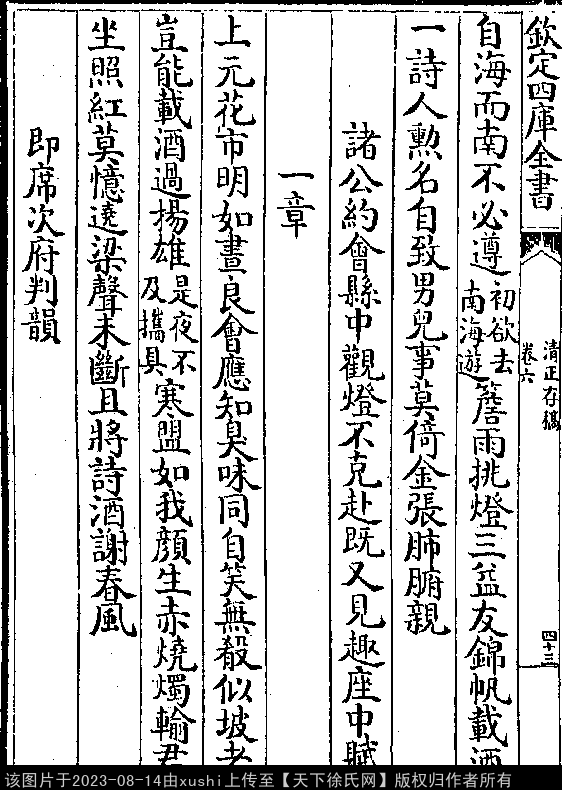 欽定四庫全書
清正存稿
卷六
四十三
自海而南不必遵初欲去南海遊簷雨挑燈三益友錦帆載酒
一詩人勲名自致男兒事莫倚金張肺腑親
諸公約會縣中觀燈不克赴既又見趣座中賦
一章
上元花市明如晝良會應知臭味同自笑無殽似坡老
豈能載酒過揚雄是夜不及攜具寒盟如我顔生赤燒燭輸君
坐照紅莫憶遶梁聲未斷且將詩酒謝春風
即席次府判韻
该图片于2023-08-14由xushi上传至【天下徐氏网】版权归作者所有